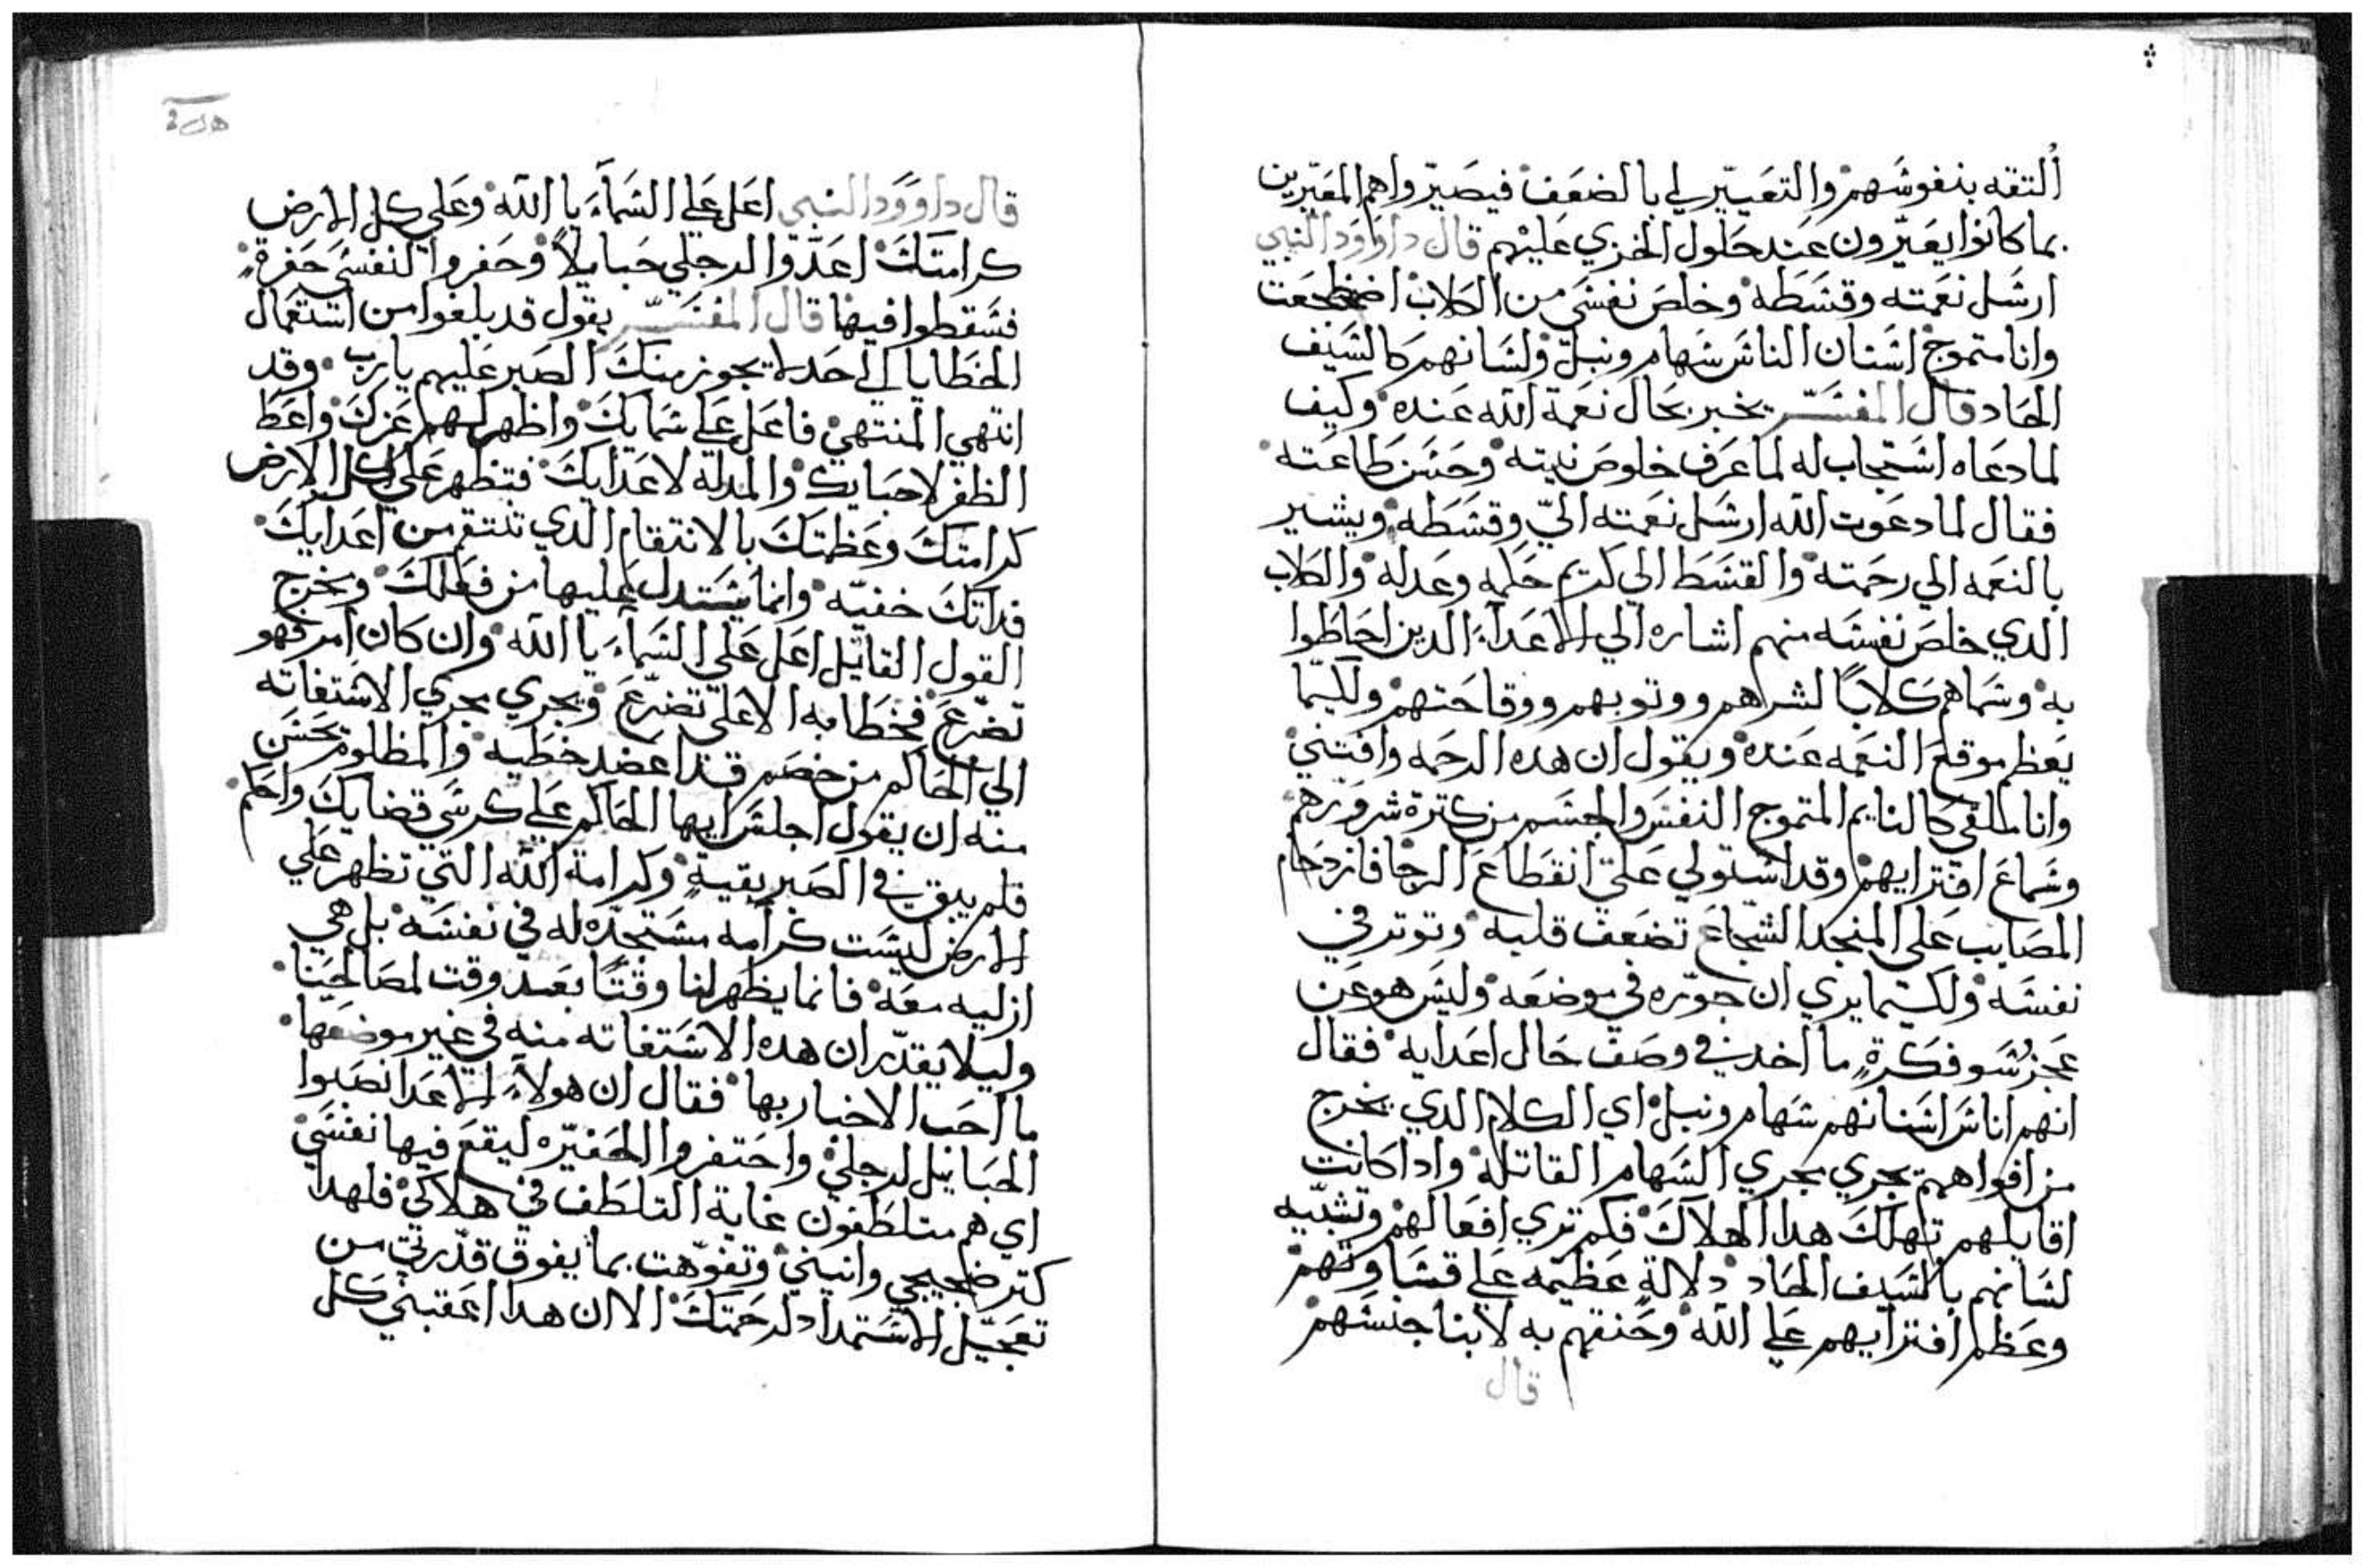 التقه بنفوسهم والتعيير لي بالضعف فيصيروا هم المعيرين
بما كانوا يعيرون عند حلول الخزي عليهم قال داوود النبي
ارسل نعمته وقسطه وخلص نفسي من الكلاب اضطجعت
وانا متموج اسنان الناس سهام ونبل ولسانهم كالسيف
الحاد قال المفسر يخبر بحال نعمة الله عنده وكيف
لما دعاه استجاب له لما عرف خلوص نيته وحسن طاعته
فقال لما دعوت الله ارسل نعمته الي وقسطه ويشير
بالنعمه الي رحمته والقسط الي كريم حكمه وعدله والكلاب
الدي خلص نفسه منهم اشاره الي الاعداء الدين احاطوا
به وسماهم كلابا لشراهم ووتوبهم ووقاحتهم ولكيما
يعظم موقع النعمه عنده ويقول ان هده الرحمه وافتني
وانا ملقي كالنايم المتموج النفس والجسم من كترة شرورهم
وسماع افترايهم وقد استولي علي انقطاع الرجا فازدحام
المصايب علي المنجد الشجاع تضعف قلبه وتوتر في
نفسه ولكيما يري ان حوره في موضعه وليس هو عن
عجز وسو فكرة ما اخد في وصف حال اعدايه فقال
انهم اناس اسنانهم سهام ونبل اي الكلام الدي يخرج
من افواههم يجري مجري السهام القاتله وادا كانت
اقايلهم تهلك هدا الهلاك فكم تري افعالهم وتشبيه
لسانهم بالسيف الحاد دلالة عظيمه علي قساوتهم
وعظم افترايهم علي الله وحنقهم به لابنا جنسهم
قال
قال داوود النبي اعل علي السماء يا الله وعلي كل الارض
كرامتك اعدوا لرجلي حبايلا وحفروا لنفسي حفرة
فسقطوا فيها قال المفسر يقول قد بلغوا من استعمال
الخطايا الي حد لا يجوز منك الصبر عليهم يا رب وقد
انتهي المنتهي فاعل علي سمايك واظهر لهم عزك واعط
الظفر لاحبايك والمدلة لاعدايك فتظهر علي كل الارض
كرامتك وعظمتك بالانتقام الدي تنتقم من اعدايك
فداتك خفيه وانما يستدل عليها من فعلك ومخرج
القول القايل اعل علي السماء يا الله وان كان امر فهو
تضرع فخطابه الاعلي تضرع ويجري مجري الاستغاته
الي الحاكم من خصم قد اعضد خطيه والمظلوم يحسن
منه ان يقول اجلس ايها الحاكم علي كرسي قضايك واحكم
فلم يبق في الصبر بقية وكرامة الله التي تظهر علي
الارض ليست كرامه مستجده له في نفسه بل هي
ازليه معه فانما يظهر لنا وقتا بعد وقت لمصالحينا
وليلا يقدر ان هده الاستغاته منه في غير موضعها
ما احب الاخبار بها فقال ان هولاء الاعدا نصبوا
الحبايل لرجلي واحتفروا الحفيره ليقع فيها نفسي
اي هم متلطفون غاية التلطف في هلاكي فلهدا
كتر ضجيجي وانيني وتفوهت بما يفوق قدرتي من
تعجيل الاستمداد لرحمتك الا ان هدا اعقبني كل